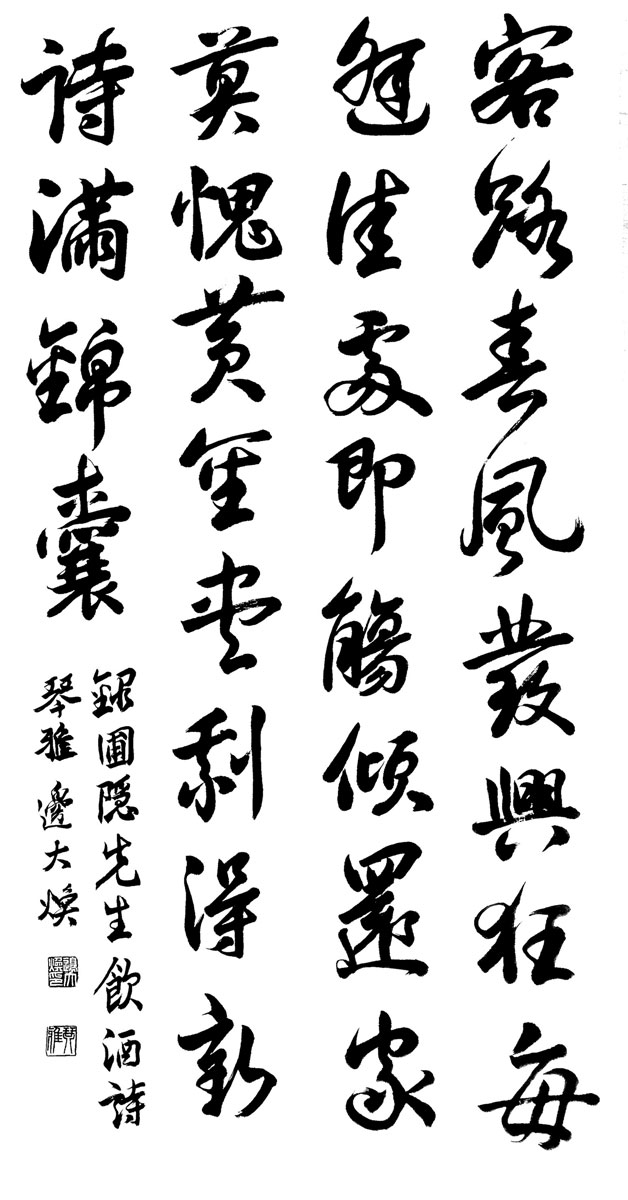 客路春風發興狂每
逢佳處即觴傾還家
莫愧黃金盡剩得新
詩滿錦囊
錄圃隱先生飲酒詩
琴雅 邊大煥